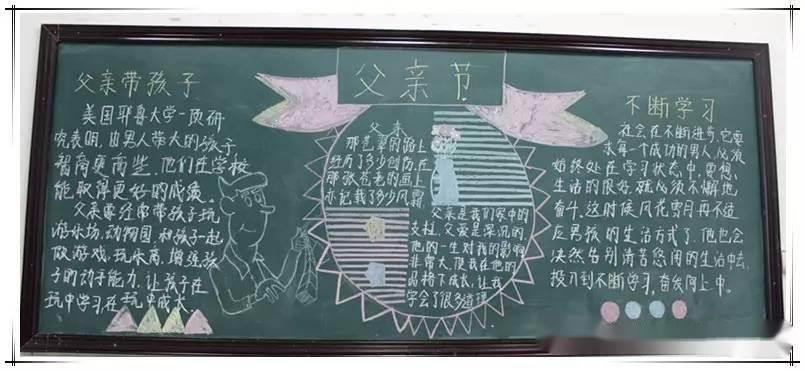 父亲节
父亲带孩子
美国耶鲁大学一项研
究表明,由男人带大的孩子
智商更高些,他们在学校
能取得更好的成绩。
父亲要经常带孩子玩
游乐场,动物园,和孩子一起
做游戏,玩乐高,增强孩
子的动手能力,让孩子在
玩中学习在玩中成长。
父亲
那苍翠的路上
经历了多少创伤,在
那张苍老的画上
亦记载了多少风霜
父亲是我们家中的
支柱,父爱是深沉的,
他的一生对我的影响
非常大,使我在他的
品格下成长,让我
学会了很多道理
不断学习
社会在不断进步,它要
求每一个成功的男人,必须
始终处在学习状态中,要想
生活的很好,就必须不懈地
奋斗,这时候风花雪月再不适
应男孩的生活方式了,他也会
决然告别清苦悠闲的生活中去,
投入到不断学习,奋发向上中。